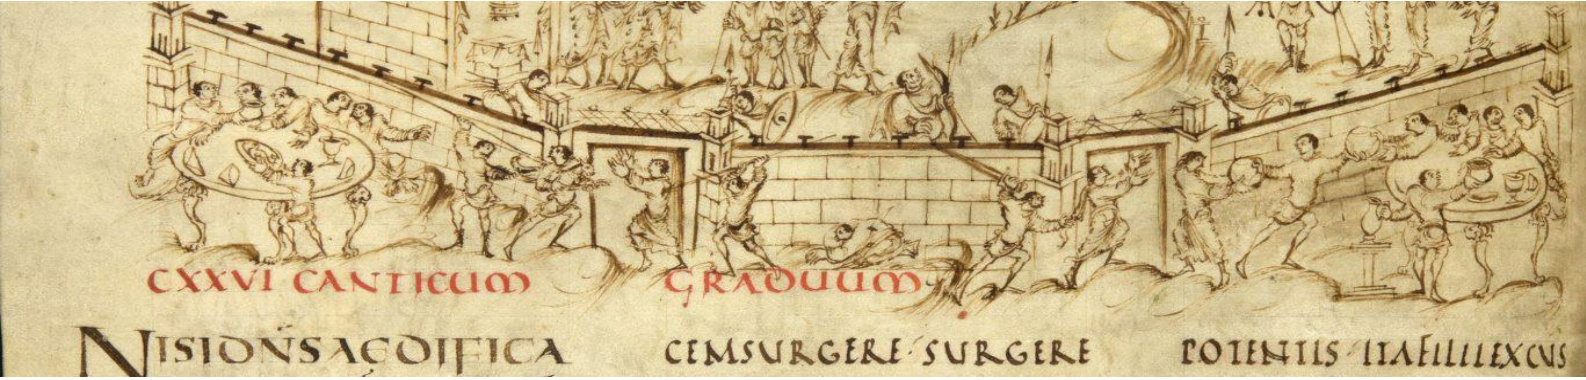 CXXVI CANTICUM GRADUUM
NISI DN̄S AEDIFICA
CEM SURGERE · SURGERE
POTENTIS · ITA FILII EXCUS